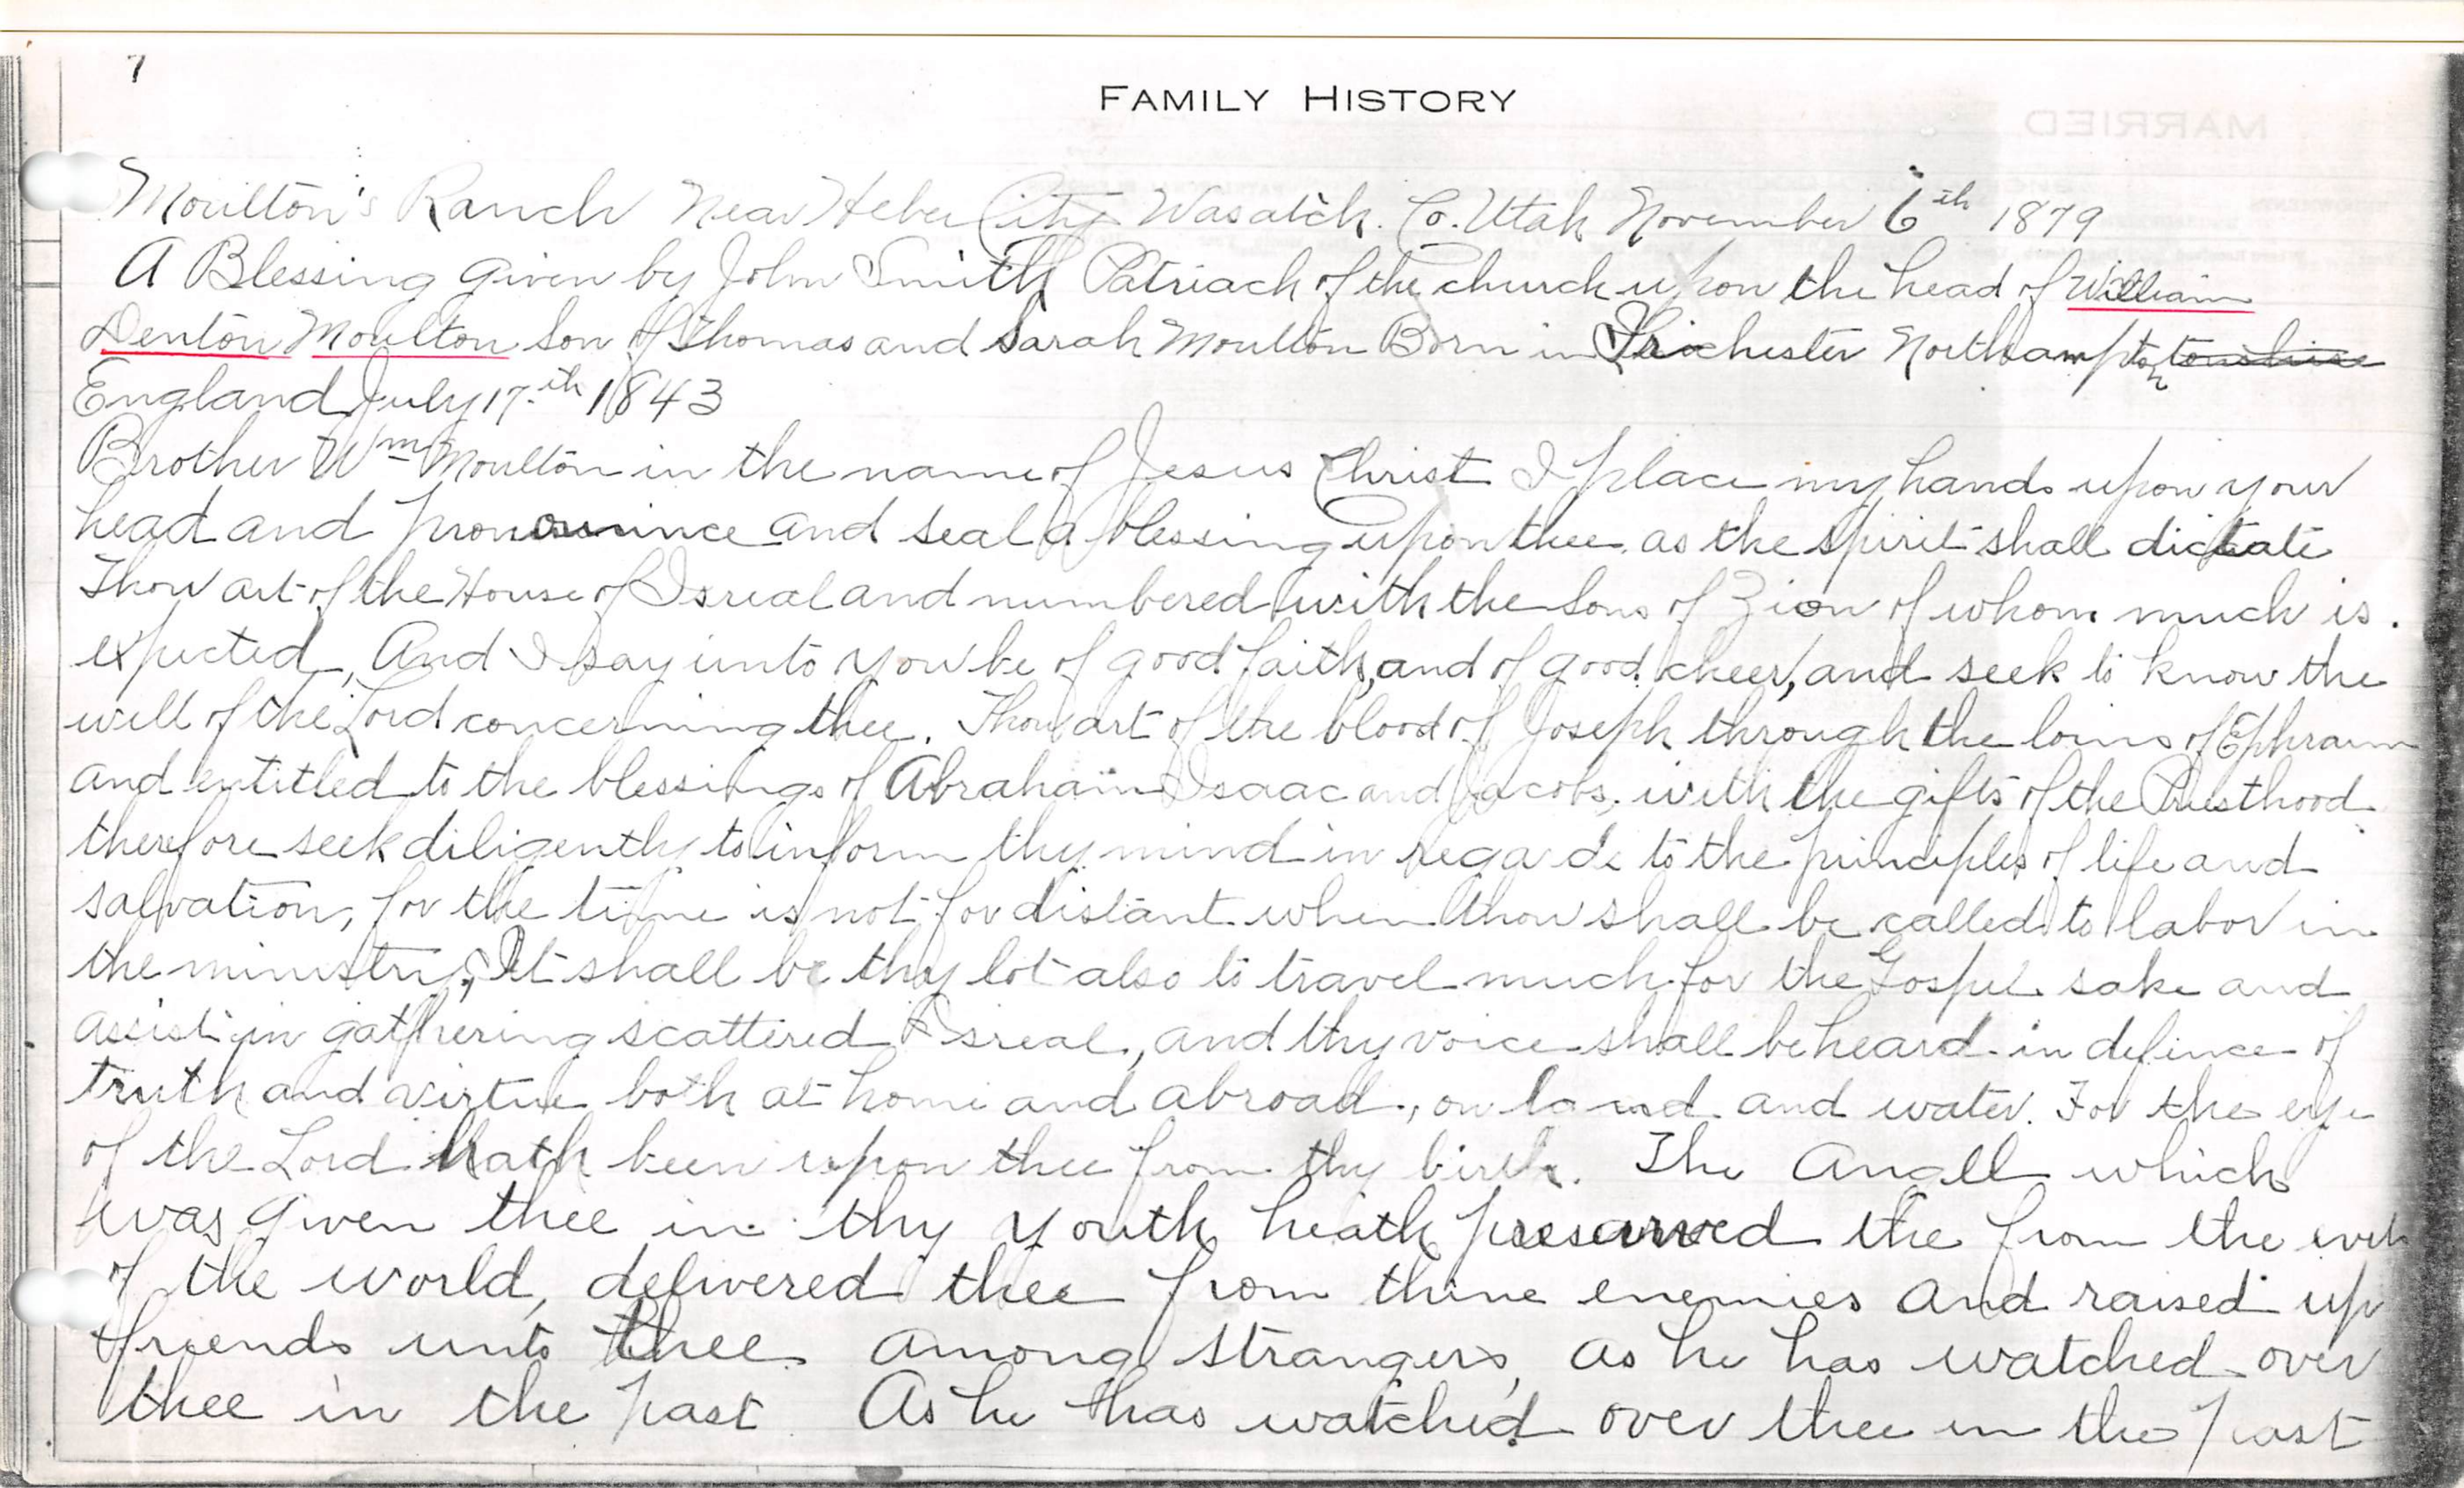 7
FAMILY HISTORY
MARRIED
Moulton's Ranch Near Heber City Wasatch. Co. Utah November 6th 1879
A Blessing given by John Smith Patriach of the church upon the head of William
Denton Moulton Son of Thomas and Sarah Moulton Born in Northampton
England July 17th 1843
Brother Wm Moulton in the name of Jesus Christ I place my hands upon your
head and pronounce and seal a blessing upon thee as the spirit shall dictate
Thou art of the House of Isreal and numbered with the Sons of Zion of whom much is.
expected, And I say unto you be of good faith, and of good cheer, and seek to know the
will of the Lord concerning thee. Thou art of the blood of Joseph through the loins of Ephraim
and entitled to the blessings of Abraham Isaac and Jacobs, with the gifts of the Priesthood
therefore seek diligently to inform thy mind in regards to the principles of life and
salvation, for the time is not for distant when thou shall be called to labor in
the ministry, It shall be thy lot also to travel much for the Gospel sake and
assist in gathering scattered Isreal, and thy voice shall be heard in defence of
truth and virtue both at home and abroad, on land and water. For the eye
of the Lord hath been upon thee from thy birth. The Angell which
was given thee in thy youth heath preserved the from the evils
of the world, delivered thee from thine enemies and raised up
friends unto thee among strangers, as he has watched over
thee in the past As he has watched over thee in the past